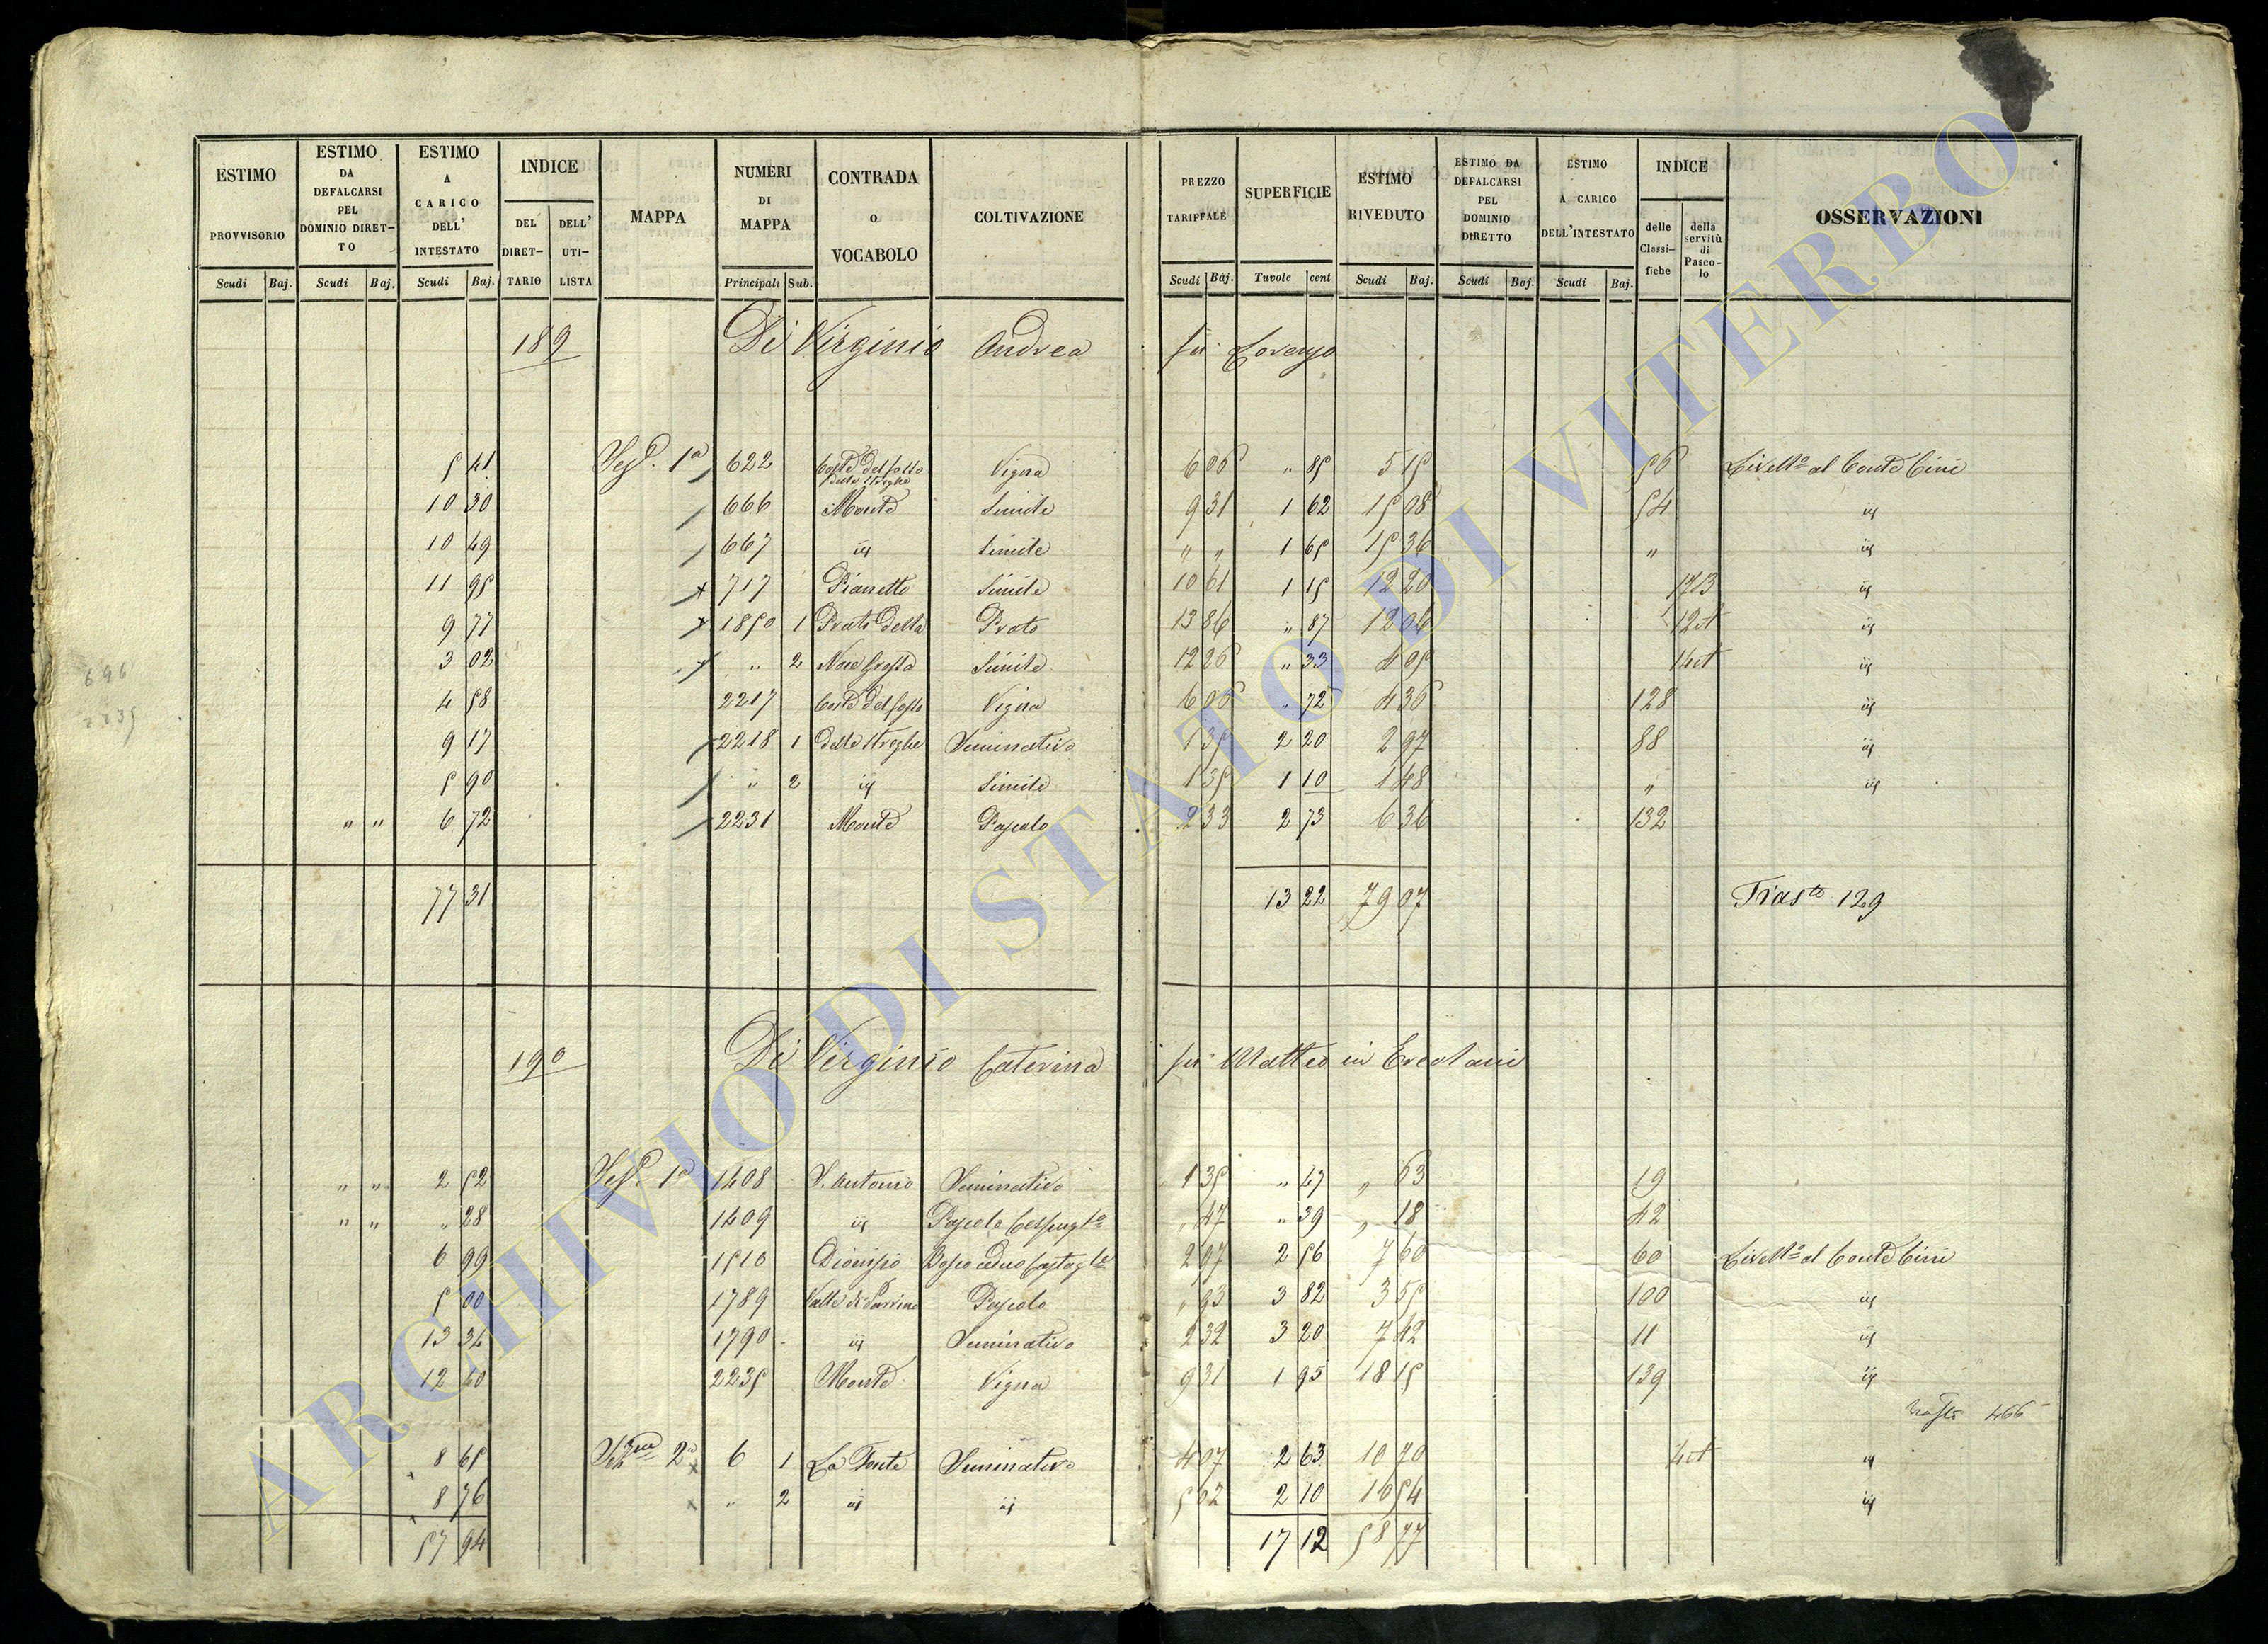 ESTIMO PROVVISORIO Scudi Baj. | ESTIMO DA DEFALCARSI PEL DOMINIO DIRET-TO Scudi Baj. | ESTIMO A CARICO DELL' INTESTATO Scudi Baj. | INDICE DEL DIRET-TARIO DELL' UTI-LISTA | MAPPA | NUMERI DI MAPPA Principali Sub. | CONTRADA o VOCABOLO | COLTIVAZIONE | PREZZO TARIFFALE Scudi Baj. | SUPERFICIE Tuvole cent | ESTIMO RIVEDUTO Scudi Baj. | ESTIMO DA DEFALCARSI PEL DOMINIO DIRETTO Scudi Baj. | ESTIMO A CARICO DELL'INTESTATO Scudi Baj. | INDICE delle Classi-fiche della servitù di Pasco-lo | OSSERVAZIONI
189 Di Virginio Andrea fu Lorenzo
5 41 1a 622 Vigna 6 06 " 85 5 15 56 Livello al Conte Cini
10 30 666 Monte Simile 9 31 1 62 15 08 54 id
10 49 667 id Simile " " 1 65 15 36 " id
11 95 717 Pianetto Simile 10 61 1 15 12 20 id
9 77 1850 1 Prato della Prato 13 86 " 87 12 06 id
3 02 " 2 Noce grossa Simile 12 26 " 33 4 05 id
4 58 2217 Coste del fosso Vigna 6 06 " 72 4 36 128 id
9 17 2218 1 delle Streghe Seminativo 1 35 2 20 2 97 88 id
5 90 " 2 id Simile 1 35 1 10 1 48 " id
" " 6 72 2231 Monte Pascolo 2 33 2 73 6 36 132
77 31 13 22 79 07 Traste 129
696
2235
190 Di Virginio Caterina fu Matteo in Ercolani
" " 2 52 1a 1408 S. Antonio Seminativo 1 35 " 47 " 63 19
" " " 28 1409 id Pascolo " 47 " 39 " 18 42
6 99 1510 Dionisio Bosco ceduo 2 97 2 56 7 60 60 Livello al Conte Cini
5 00 1789 Pascolo " 93 3 82 3 55 100 id
13 34 1790 id Seminativo 2 32 3 20 7 42 11 id
12 40 2235 Monte Vigna 9 31 1 95 18 15 139 id
466
8 65 2a 6 1 La Fonte Seminativo 4 07 2 63 10 70 id
8 76 " 2 id id 5 02 2 10 10 54 id
57 94 17 12 58 77
ARCHIVIO DI STATO DI VITERBO